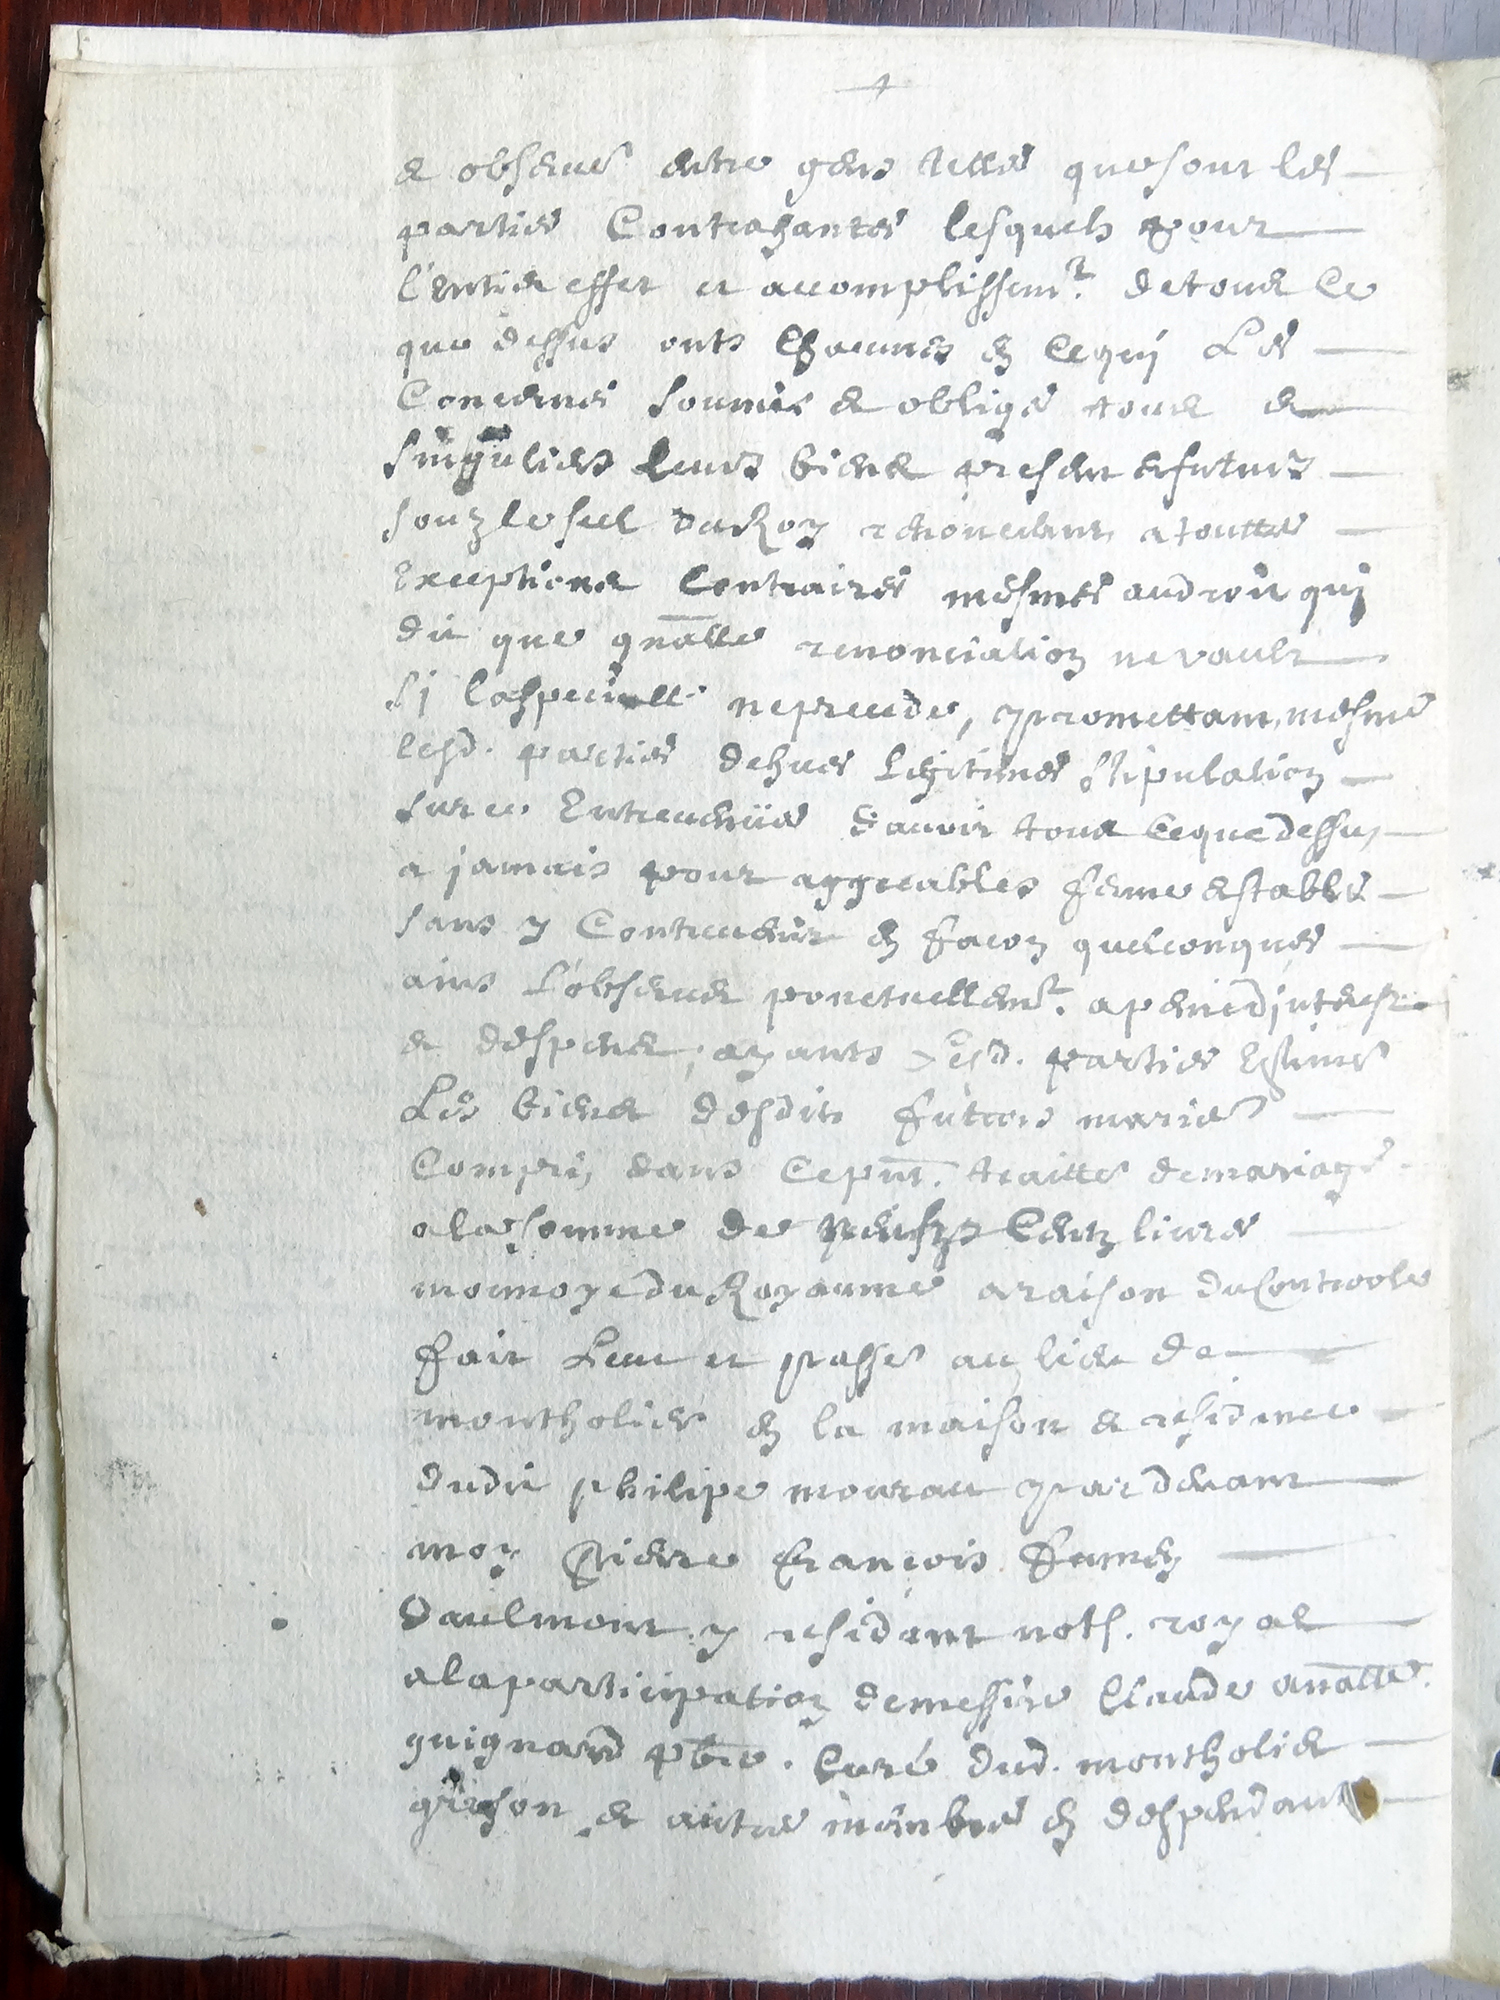 & observé entre gens telles que sont les
parties Contrahantes lesquels pour
l'Entier effet et accomplissemt. de tout Ce
que dessus onts Chacunes en Ce qui Les
Concernes soumis & obligé tout &
singuliers leurs biens present & futurs
souz le seel du Roy renoncant a toutte
Exceptions Contraires mesmes au droit qui
dit que gnalle renonciation ne vault
si laspecialle ne precede, promettant, mesme
lesd. parties dehues legitimes stipulation
sur ce Entrevenües d'avoir tout Ce que dessus
a jamais pour aggreables ferme & stable
sans y Contrevenir en facon quelconques
ains L'observer ponctuellemt. a peine d'jnterest
& despens, ayants Lesd. parties Estimés
Les biens desdits futurs mariés
Compris dans Ce pnt. traitté de mariage
a la somme de Centz livres
monnoye du Royaume a raison du Controole
fait Leu et passé au lieu de
montholier en la maison & residence
dudit philipe moureau par devant
moy Pierre francois
Vaulmour y residant nots. royal
a la participation de messire Claude anatlle.
guignard pbre. Curé dud. montholier
grozon & autres menbres en despendant